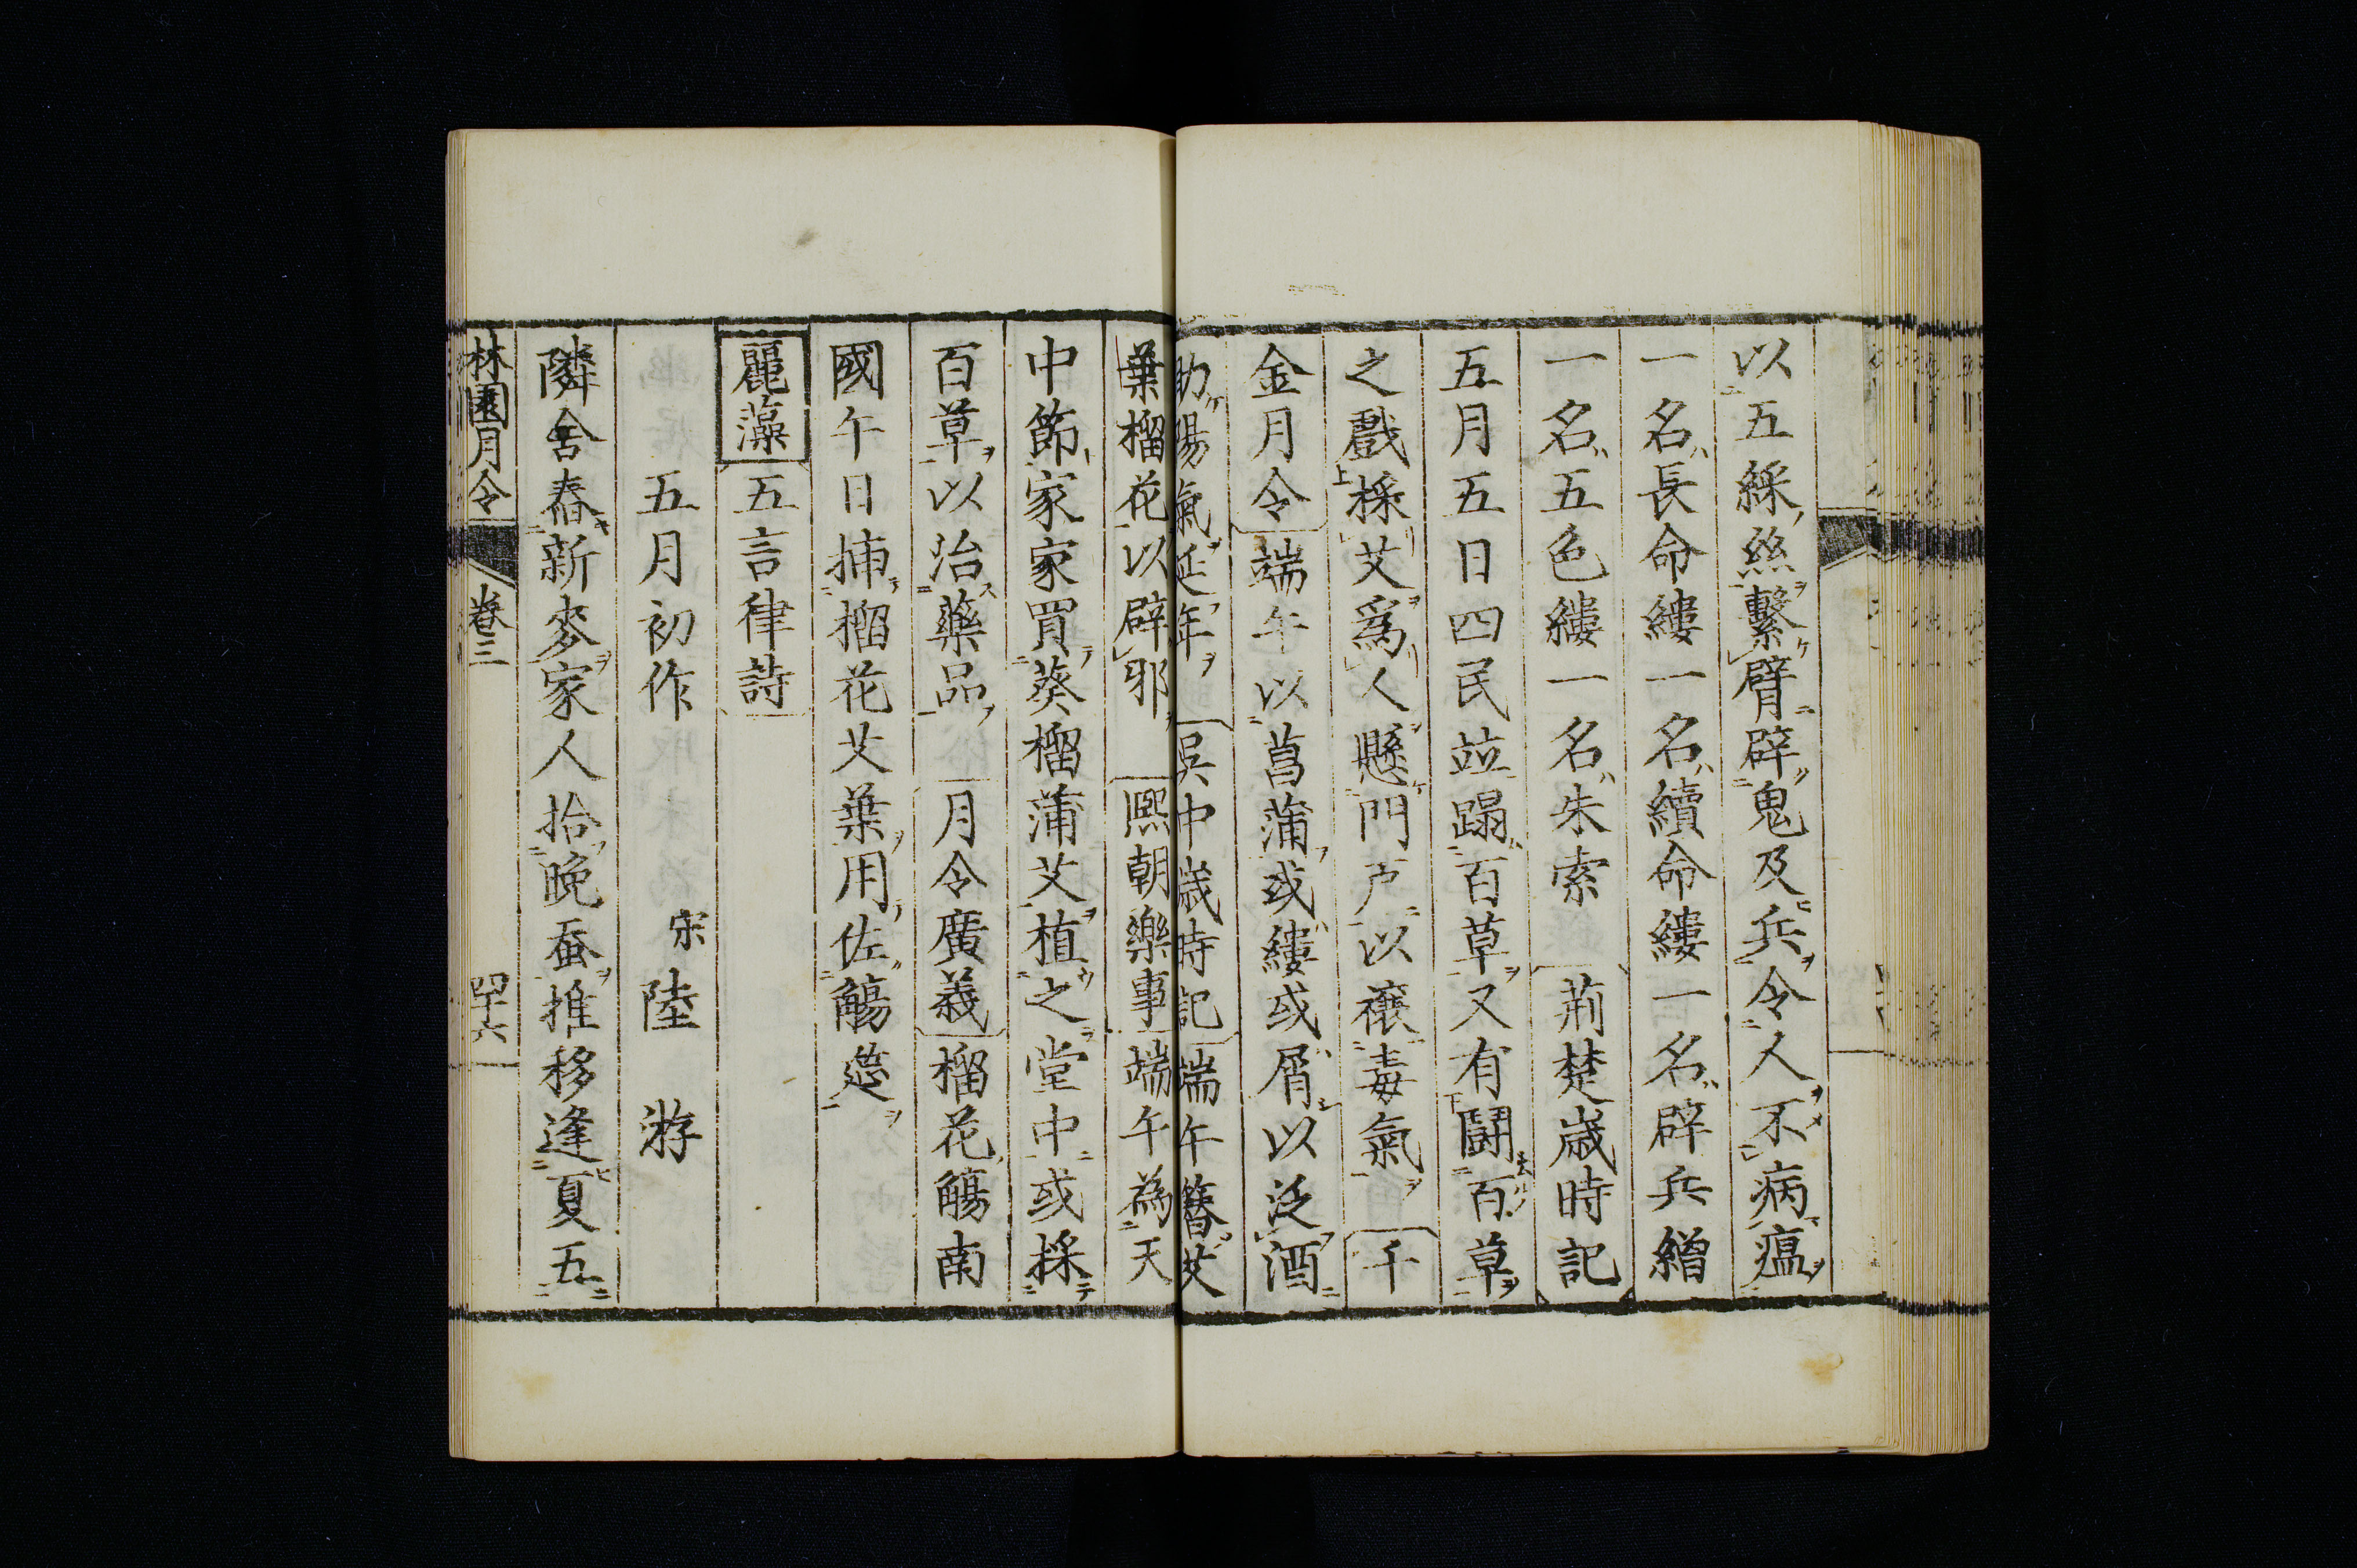 以五綵絲繫臂辟鬼及兵令人不病瘟
一名長命縷一名續命縷一名辟兵繒
一名五色縷一名朱索　荊楚歲時記
五月五日四民竝蹋百草又有鬪百草
之戲採艾爲人懸門戶以禳毒氣　千
金月令端午以菖蒲或縷或屑以泛酒
助陽氣延年　吳中歲時記端午簪艾
葉榴花以辟邪　熙朝樂事端午為天
中節家家買葵榴蒲艾植之堂中或採
百草以治藥品　月令廣義榴花觴南
國午日捕榴花艾葉用佐觴筵
麗藻　五言律詩
五月初作　宋　陸　游
隣舍舂新麥家人拾晚蚕推移逢夏五
林園月令　卷三　四十六